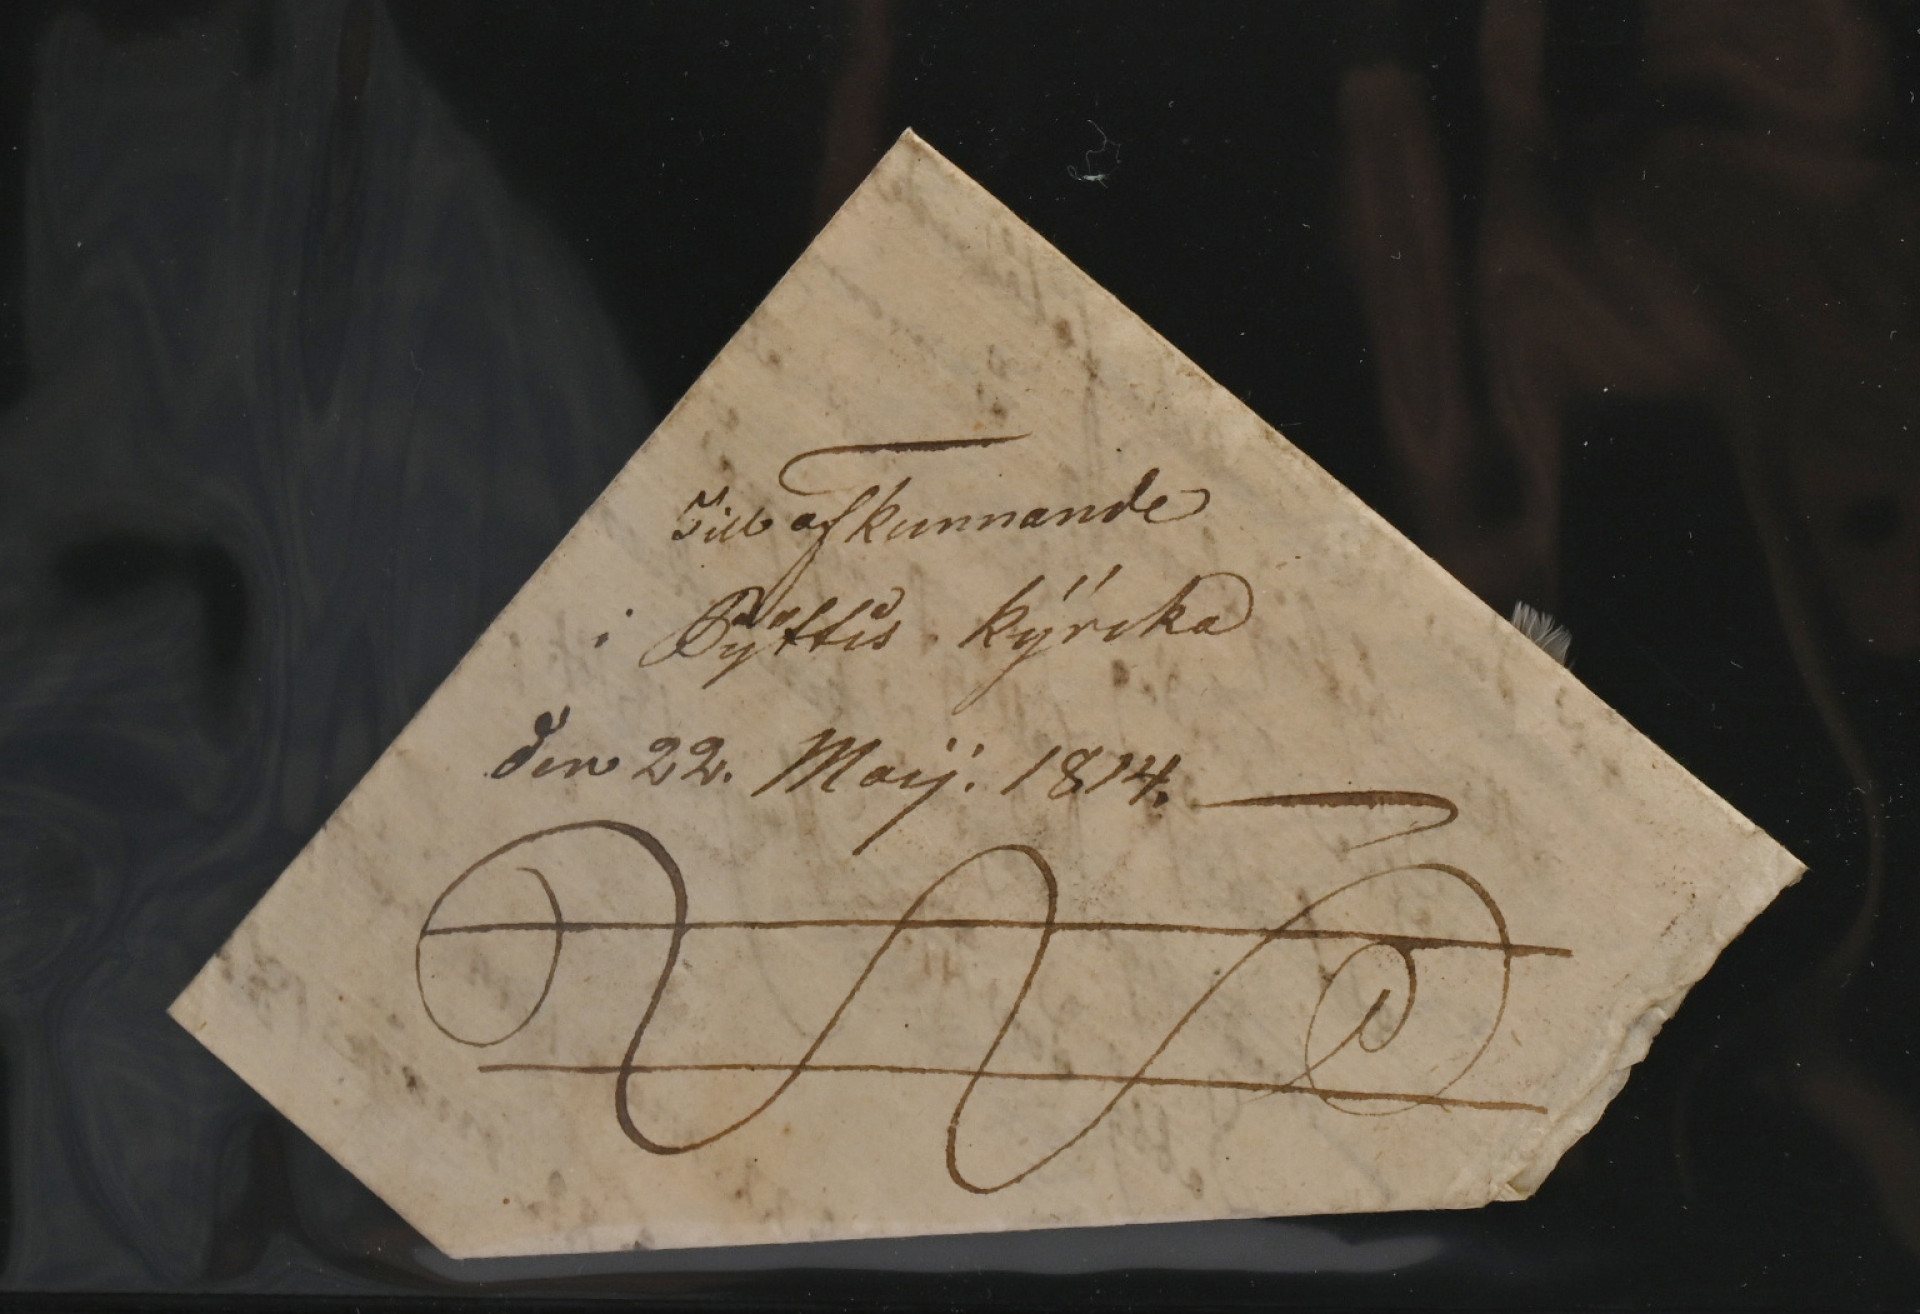 Till afkunnande
i Pÿttis kÿrcka
den 22. Maij. 1814.